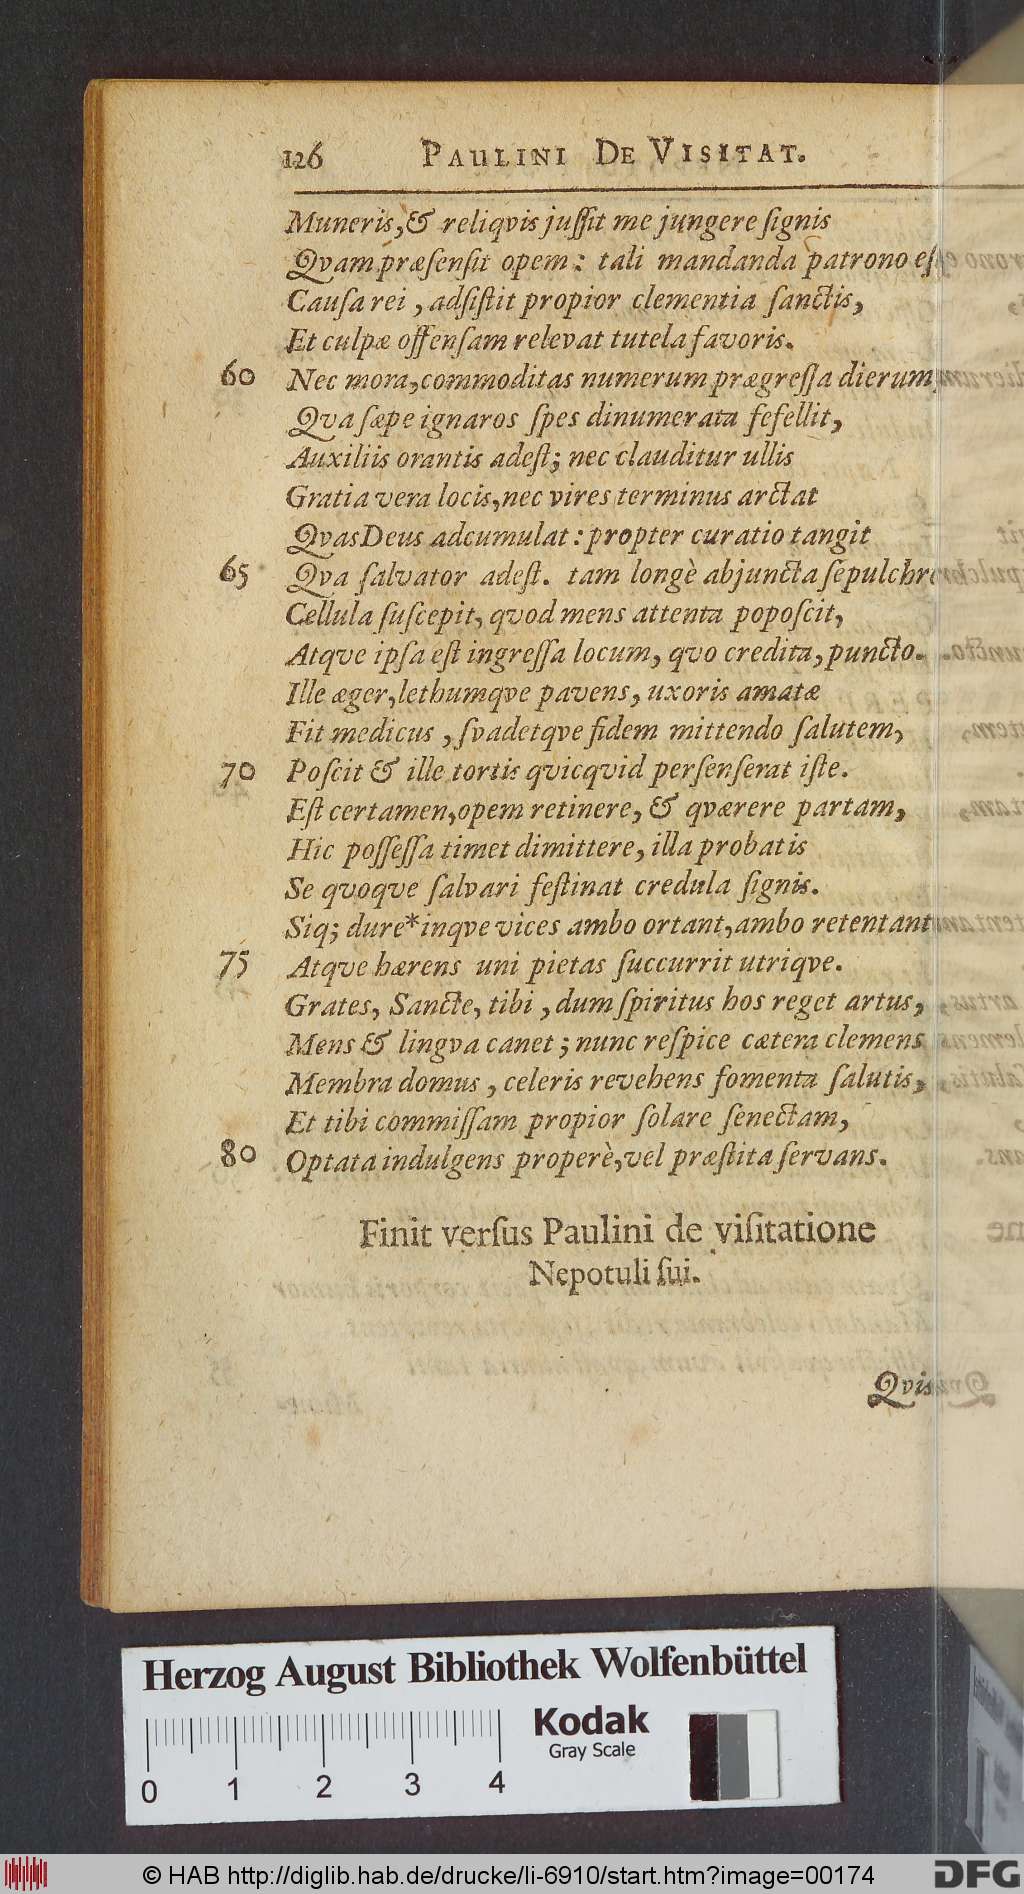 126 PAULINI DE VISITAT.
Muneris,& reliqvis juſſit me jungere ſignis
Qvam præſenſit opem: tali mandanda patrono
Cauſa rei, adſiſtit propior clementia ſanctis,
Et culpæ offenſam relevat tutela favoris.
60 Nec mora,commoditas numerum prægreſſa dierum,
Qva ſæpe ignaros ſpes dinumerata fefellit,
Auxiliis orantis adeſt; nec clauditur ullis
Gratia vera locis,nec vires terminus arctat
Qvas Deus adcumulat: propter curatio tangit
65 Qva ſalvator adeſt. tam longè abjuncta
Cellula ſuſcepit, quod mens attenta popoſcit,
Atqve ipſa eſt ingreſſa locum, qvo credita, puncto.
Ille æger,lethumqve pavens, uxoris amatæ
Fit medicus, ſvadetqve fidem mittendo ſalutem,
70 Poſcit & ille tortis qvicqvid perſenſerat iſte.
Eſt certamen,opem retinere, & qværere partam,
Hic poſſeſſa timet dimittere, illa probatis
Se qvoqve ſalvari feſtinat credula ſignis.
Siq; dure*inqve vices ambo ortant,ambo retentant
75 Atqve hærens uni pietas ſuccurrit utriqve.
Grates, Sancte, tibi, dum ſpiritus hos reget artus,
Mens & lingva canet; nunc reſpice cætera clemens
Membra domus, celeris revehens fomenta ſalutis,
Et tibi commiſſam propior ſolare ſenectam,
80 Optata indulgens properè,vel præſtita ſervans.
Finit verſus Paulini de viſitatione
Nepotuli ſui.
Qvis
Herzog August Bibliothek Wolfenbüttel
Kodak
Gray Scale
0 1 2 3 4
© HAB http://diglib.hab.de/drucke/li-6910/start.htm?image=00174
DFG